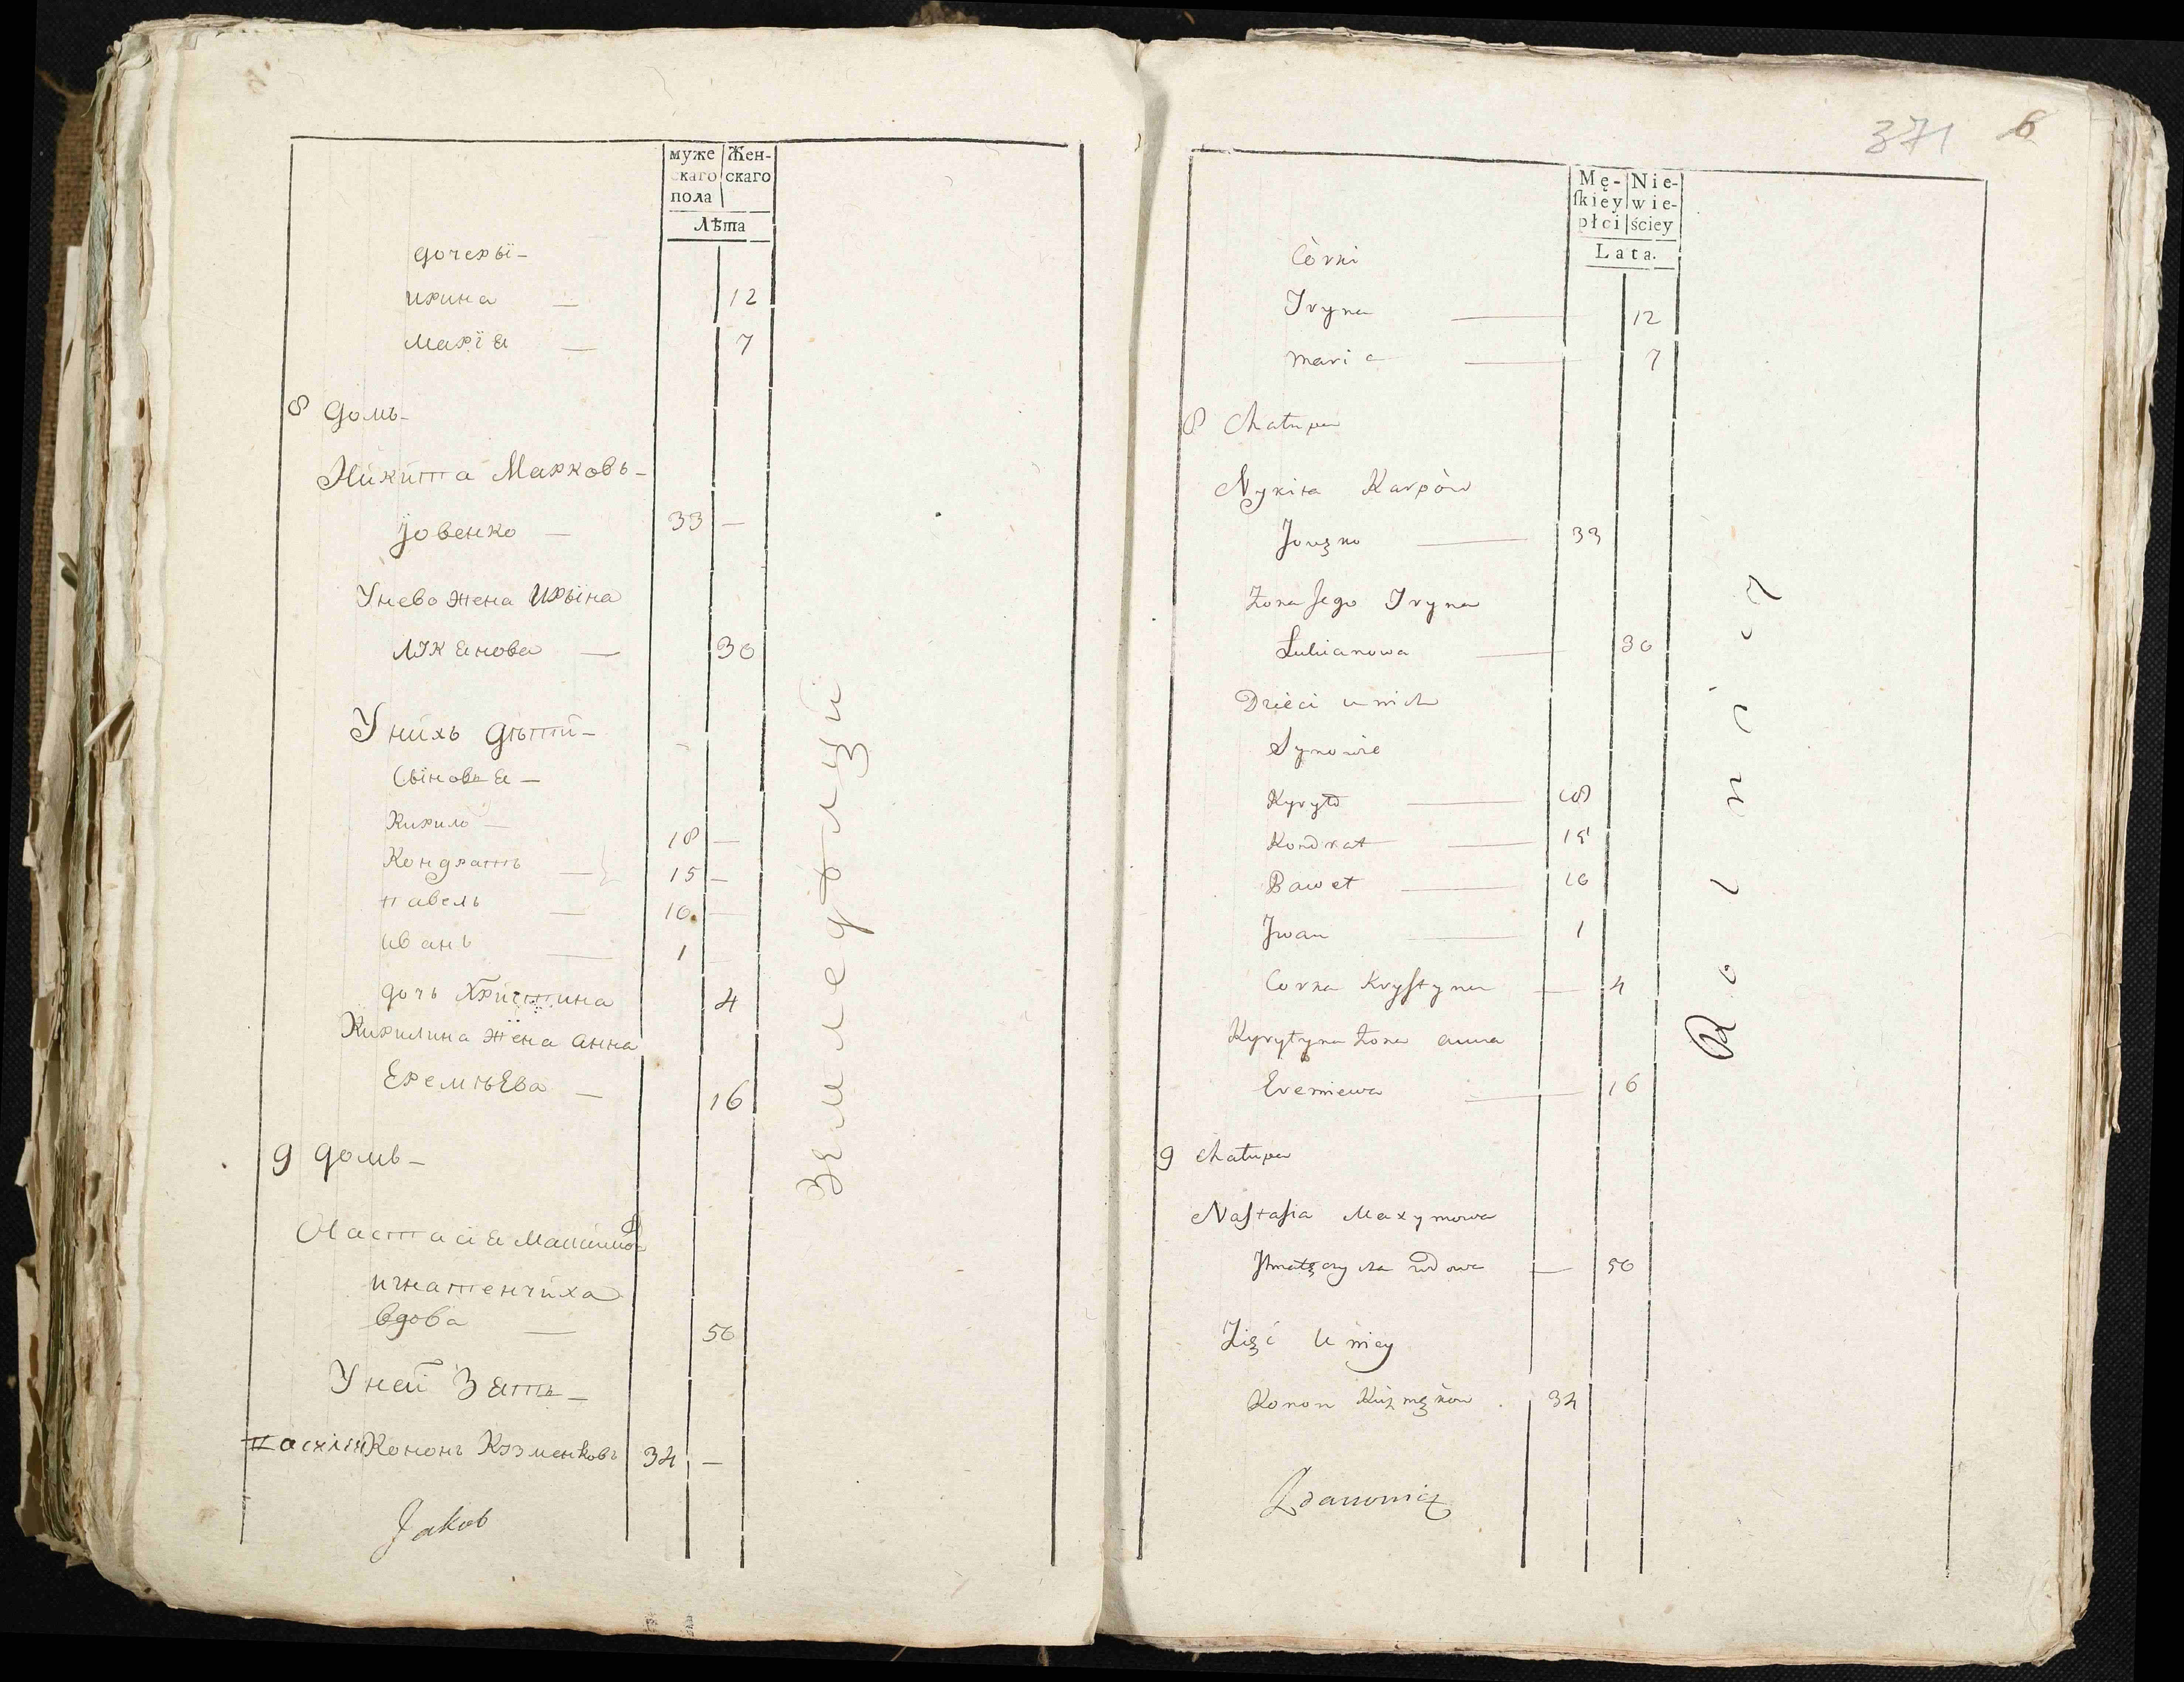 муже
скаго
пола
Жен-
скаго
Лѣта
дочеры-
ирина — 12
марїя — 7
8 домъ-
Никита Марковъ-
Їовенко — 33 —
Унево жена Ирына
Лукянова — 30
Унихъ дѣти-
Сынов я-
Кирило — 18 —
Кондратъ — 15 —
павелъ — 10 —
иванъ — 1 —
дочь Христина 4
Кирилина жена анна
Еремѣева — 16
9 домъ-
Настасїя Машимов
игнатенчиха
вдова — 50
Уней Зять-
Кононъ Кузменковъ 34 —
Jakob
Земледѣлцы
371 6
Mę-
ſkiey
płci
Nie-
wie-
ściey
Lata.
Còrki
Iryna — 12
maria — 7
8 Chałupa
Nykita Karpòw
Jouęko — 33
Żona Jego Iryna
Łukianowa — 30
Dzieci u nich
Synowie
Kyryło — 18
Kondrat — 15
Paweł — 10
Jwan — 1
Corka Kryſtyna — 4
Kyryłyna Żona anna
Eremiewa — 16
9 chałupa
Naſtaſia Maxymowa
wdowa — 50
Zięć u niey
Konon Kuzmękow 34
Zdanowicz
Rolnicy